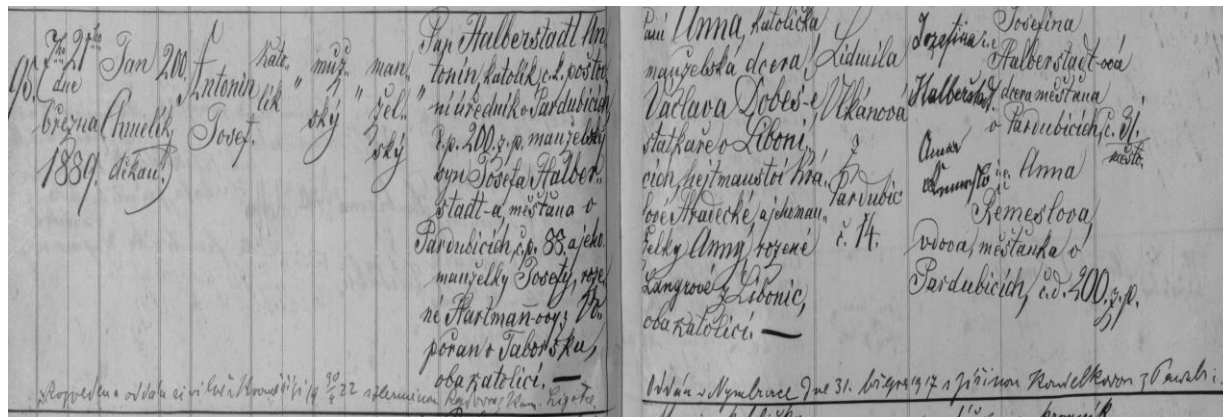 95.
7ho 21ho
dne
března
1889.
Jan
Chmelík,
děkan.
200.
Antonín
Josef.
kato-
lík
"
muž-
ský
"
man-
žel-
ský
Pan Halberstadt An-
tonín, katolík, c. k. poštov-
ní úředník v Pardubicích,
č. p. 200. z. p. manželský
syn Josefa Halber-
stadt-a, měšťana v
Pardubicích, č. p. 88. a jeho
manželky Josefy, roze-
né Hartman-ovy, z
v Táborsku,
oba katolíci. —
Paní Anna, katolička
manželská dcera,
Václava Dobeš-e
statkáře v Liboni-
cích, hejtmanství Krá-
lové Hradecké, a jeho man-
želky Anny, rozené
Langrové z Libonic,
oba katolíci. —
Lidmila
Vlkánová
z
Pardubic
č. 14.
Josefina
Halberstadt
Anna
Josefina
Halberstadt-ová
dcera měšťana
v Pardubicích, č. 31.
město.
Anna
Řemeslová,
vdova, měšťanka v
Pardubicích, č. d. 200. z. p.
oddán civilně v Kroměříži 19 30/4 22 s Herminou
Oddán v Nymburce dne 31. března 1917 s Jiřinou